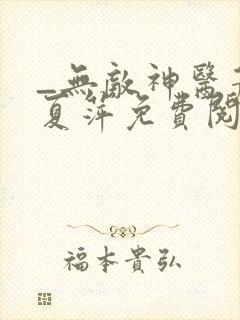 _無敵神醫
夏萍免費閱
福本貴弘